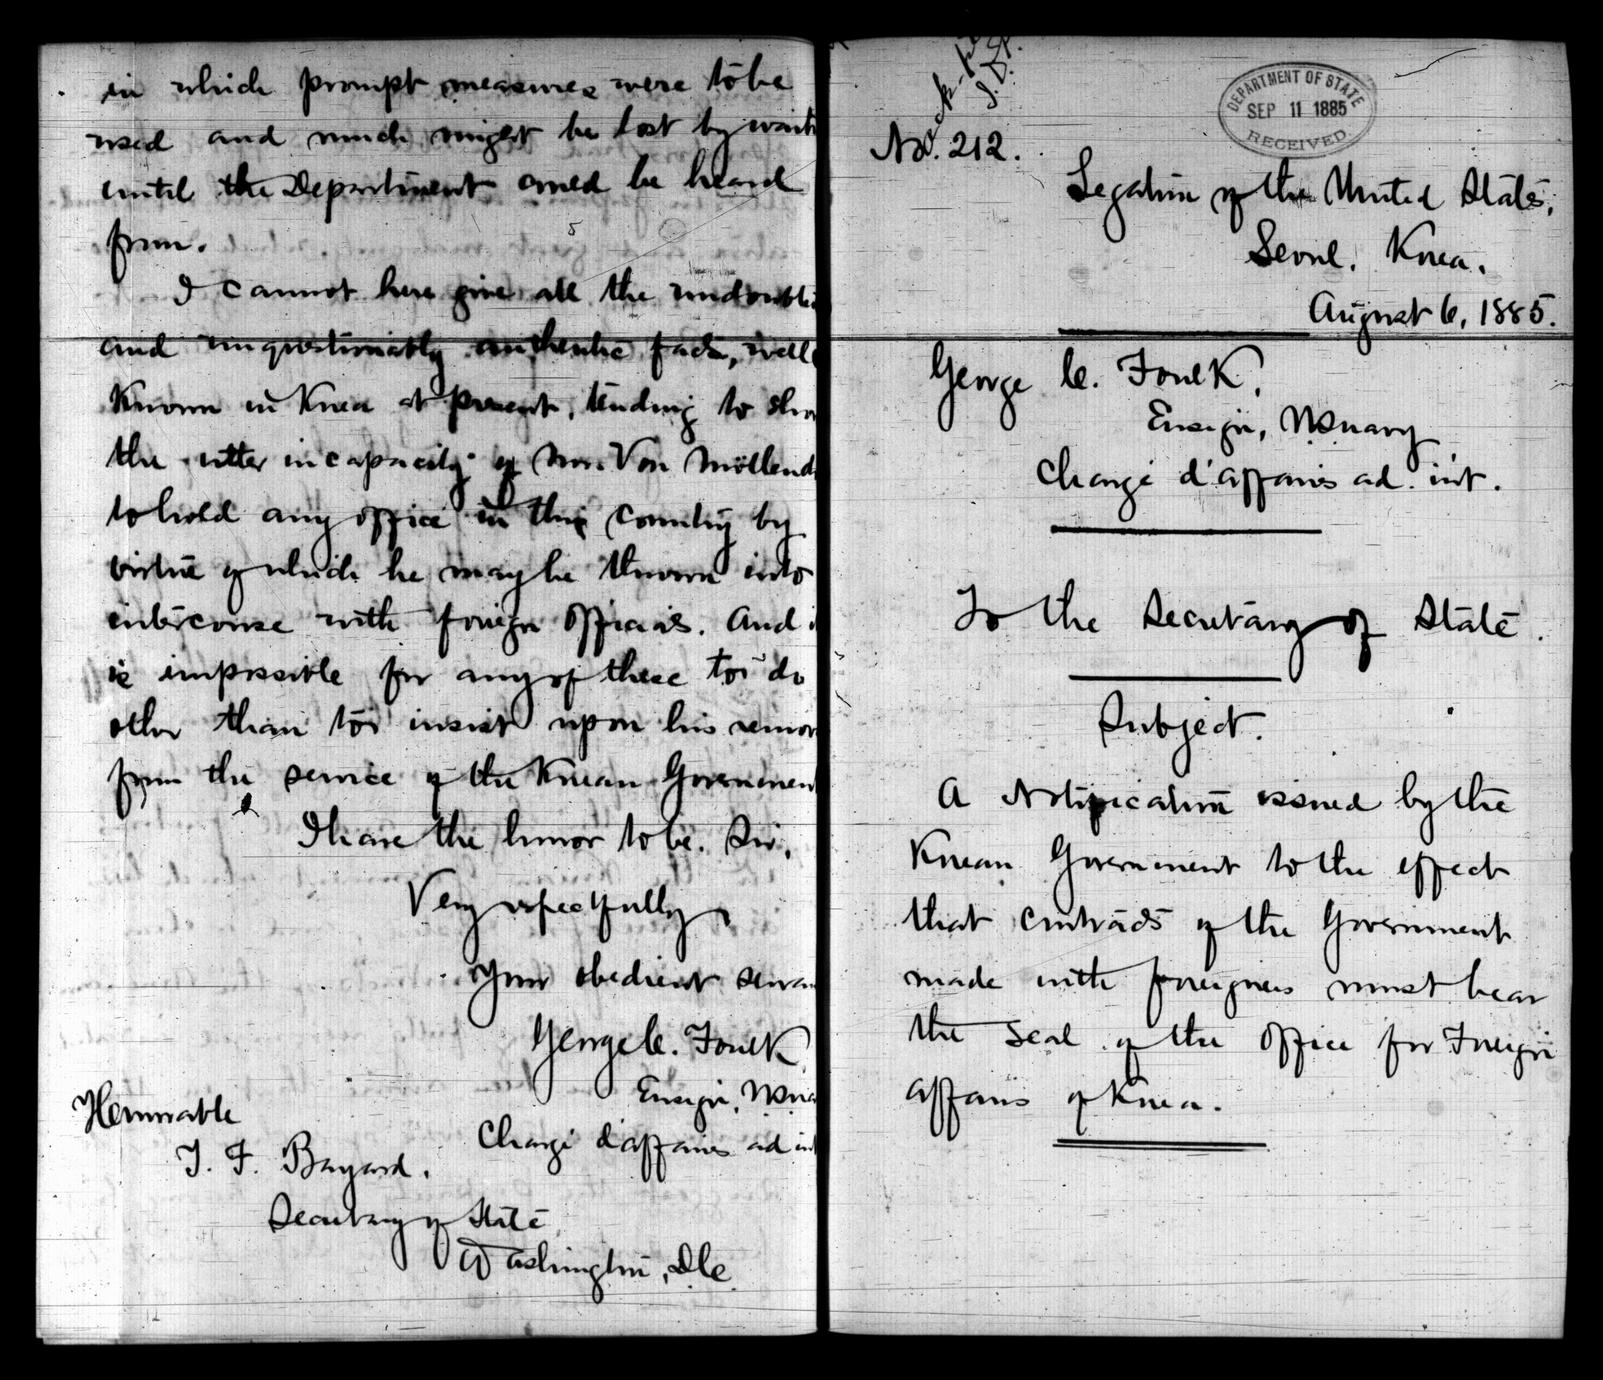 in which prompt measures were to be
used and much might be lost by wait
until the Department could be heard
from.
I cannot here give all the undoubte
and unquestionably authentic facts, well
known in Korea at present, tending to sho
the utter incapacity of Mr. Von Möllend
to hold any office in this Country by
virtue of which he may be thrown into
intercourse with foreign officials. And i
is impossible for any of these to do
other than to insist upon his remov
from the service of the Korean Government
I have the honor to be, Sir,
Very respectfully,
Your obedient serva
George C. Foulk,
Ensign, U.S. Na
Chargé d'affaires ad int
Honorable
T. F. Bayard.
Secretary of State,
Washington, D.C.
No. 212.
DEPARTMENT OF STATE
SEP 11 1885
RECEIVED.
Legation of the United States,
Seoul, Korea.
August 6, 1885.
George C. Foulk,
Ensign, U.S. Navy
Chargé d'affaires ad. int.
To the Secretary of State.
Subject.
A Notification issued by the
Korean Government to the effect
that contracts of the Government
made with foreigners must bear
the seal of the Office for Foreign
Affairs of Korea.